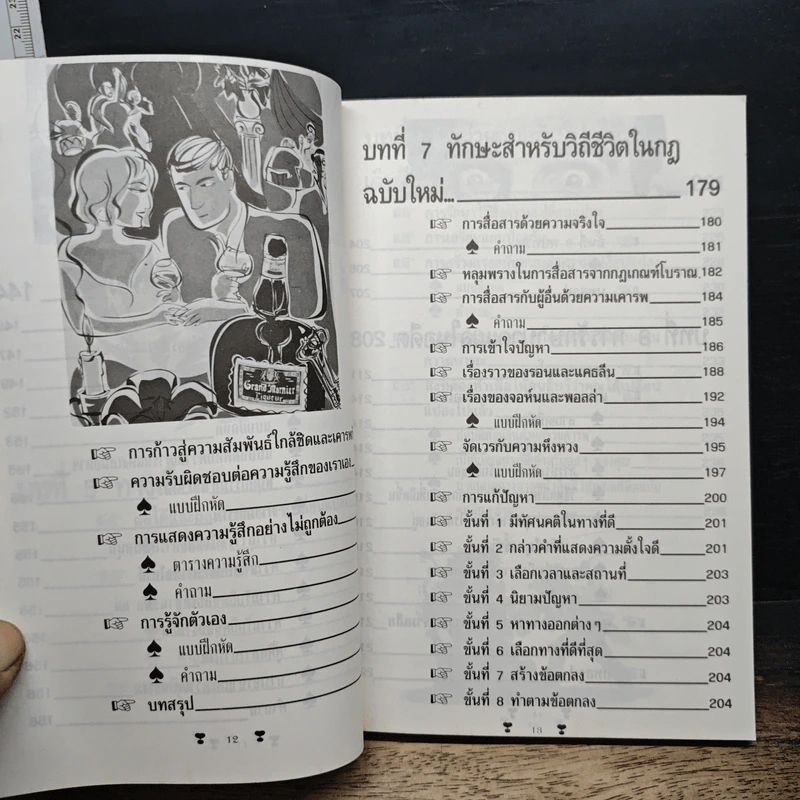 22
21
Grand Marnier
Liqueur
การก้าวสู่ความสัมพันธ์ใกล้ชิดและเคารพ
ความรับผิดชอบต่อความรู้สึกของเราเอง
♠ แบบฝึกหัด
การแสดงความรู้สึกอย่างไม่ถูกต้อง
♠ ตารางความรู้สึก
♠ คำถาม
การรู้จักตัวเอง
♠ แบบฝึกหัด
♠ คำถาม
บทสรุป
12
บทที่ 7 ทักษะสำหรับวิถีชีวิตในกฎ
ฉบับใหม่... 179
การสื่อสารด้วยความจริงใจ 180
♠ คำถาม 181
หลุมพรางในการสื่อสารจากกฎเกณฑ์โบราณ 182
การสื่อสารกับผู้อื่นด้วยความเคารพ 184
♠ คำถาม 185
การเข้าใจปัญหา 186
เรื่องราวของรอนและแคธลีน 188
เรื่องของจอห์นและพอลล่า 192
♠ แบบฝึกหัด 194
จัดเวรกับความหึงหวง 195
♠ แบบฝึกหัด 197
การแก้ปัญหา 200
ขั้นที่ 1 มีทัศนคติในทางที่ดี 201
ขั้นที่ 2 กล่าวคำที่แสดงความตั้งใจดี 201
ขั้นที่ 3 เลือกเวลาและสถานที่ 203
ขั้นที่ 4 นิยามปัญหา 203
ขั้นที่ 5 หาทางออกต่างๆ 204
ขั้นที่ 6 เลือกทางที่ดีที่สุด 204
ขั้นที่ 7 สร้างข้อตกลง 204
ขั้นที่ 8 ทำตามข้อตกลง 204
13